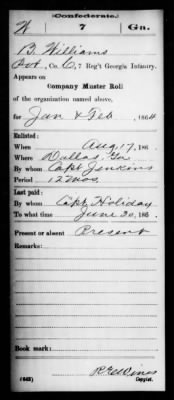 Confederate.
W 7 Ga.
B. Williams
Pvt, Co. C, 7 Reg't Georgia Infantry.
Appears on
Company Muster Roll
of the organization named above,
for Jan & Feb, 1864
Enlisted:
When Aug 17, 186 .
Where Dallas, Ga
By whom Capt Jenkins
Period 12 Mos.
Last paid:
By whom Capt Holiday
To what time June 30, 186 .
Present or absent Present
Remarks:
Book mark:
(642)
Copyist.